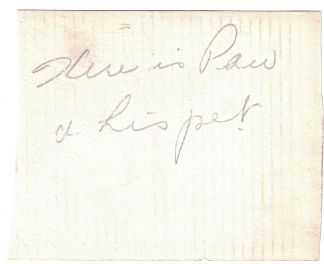 Here is Paw
& his pet.